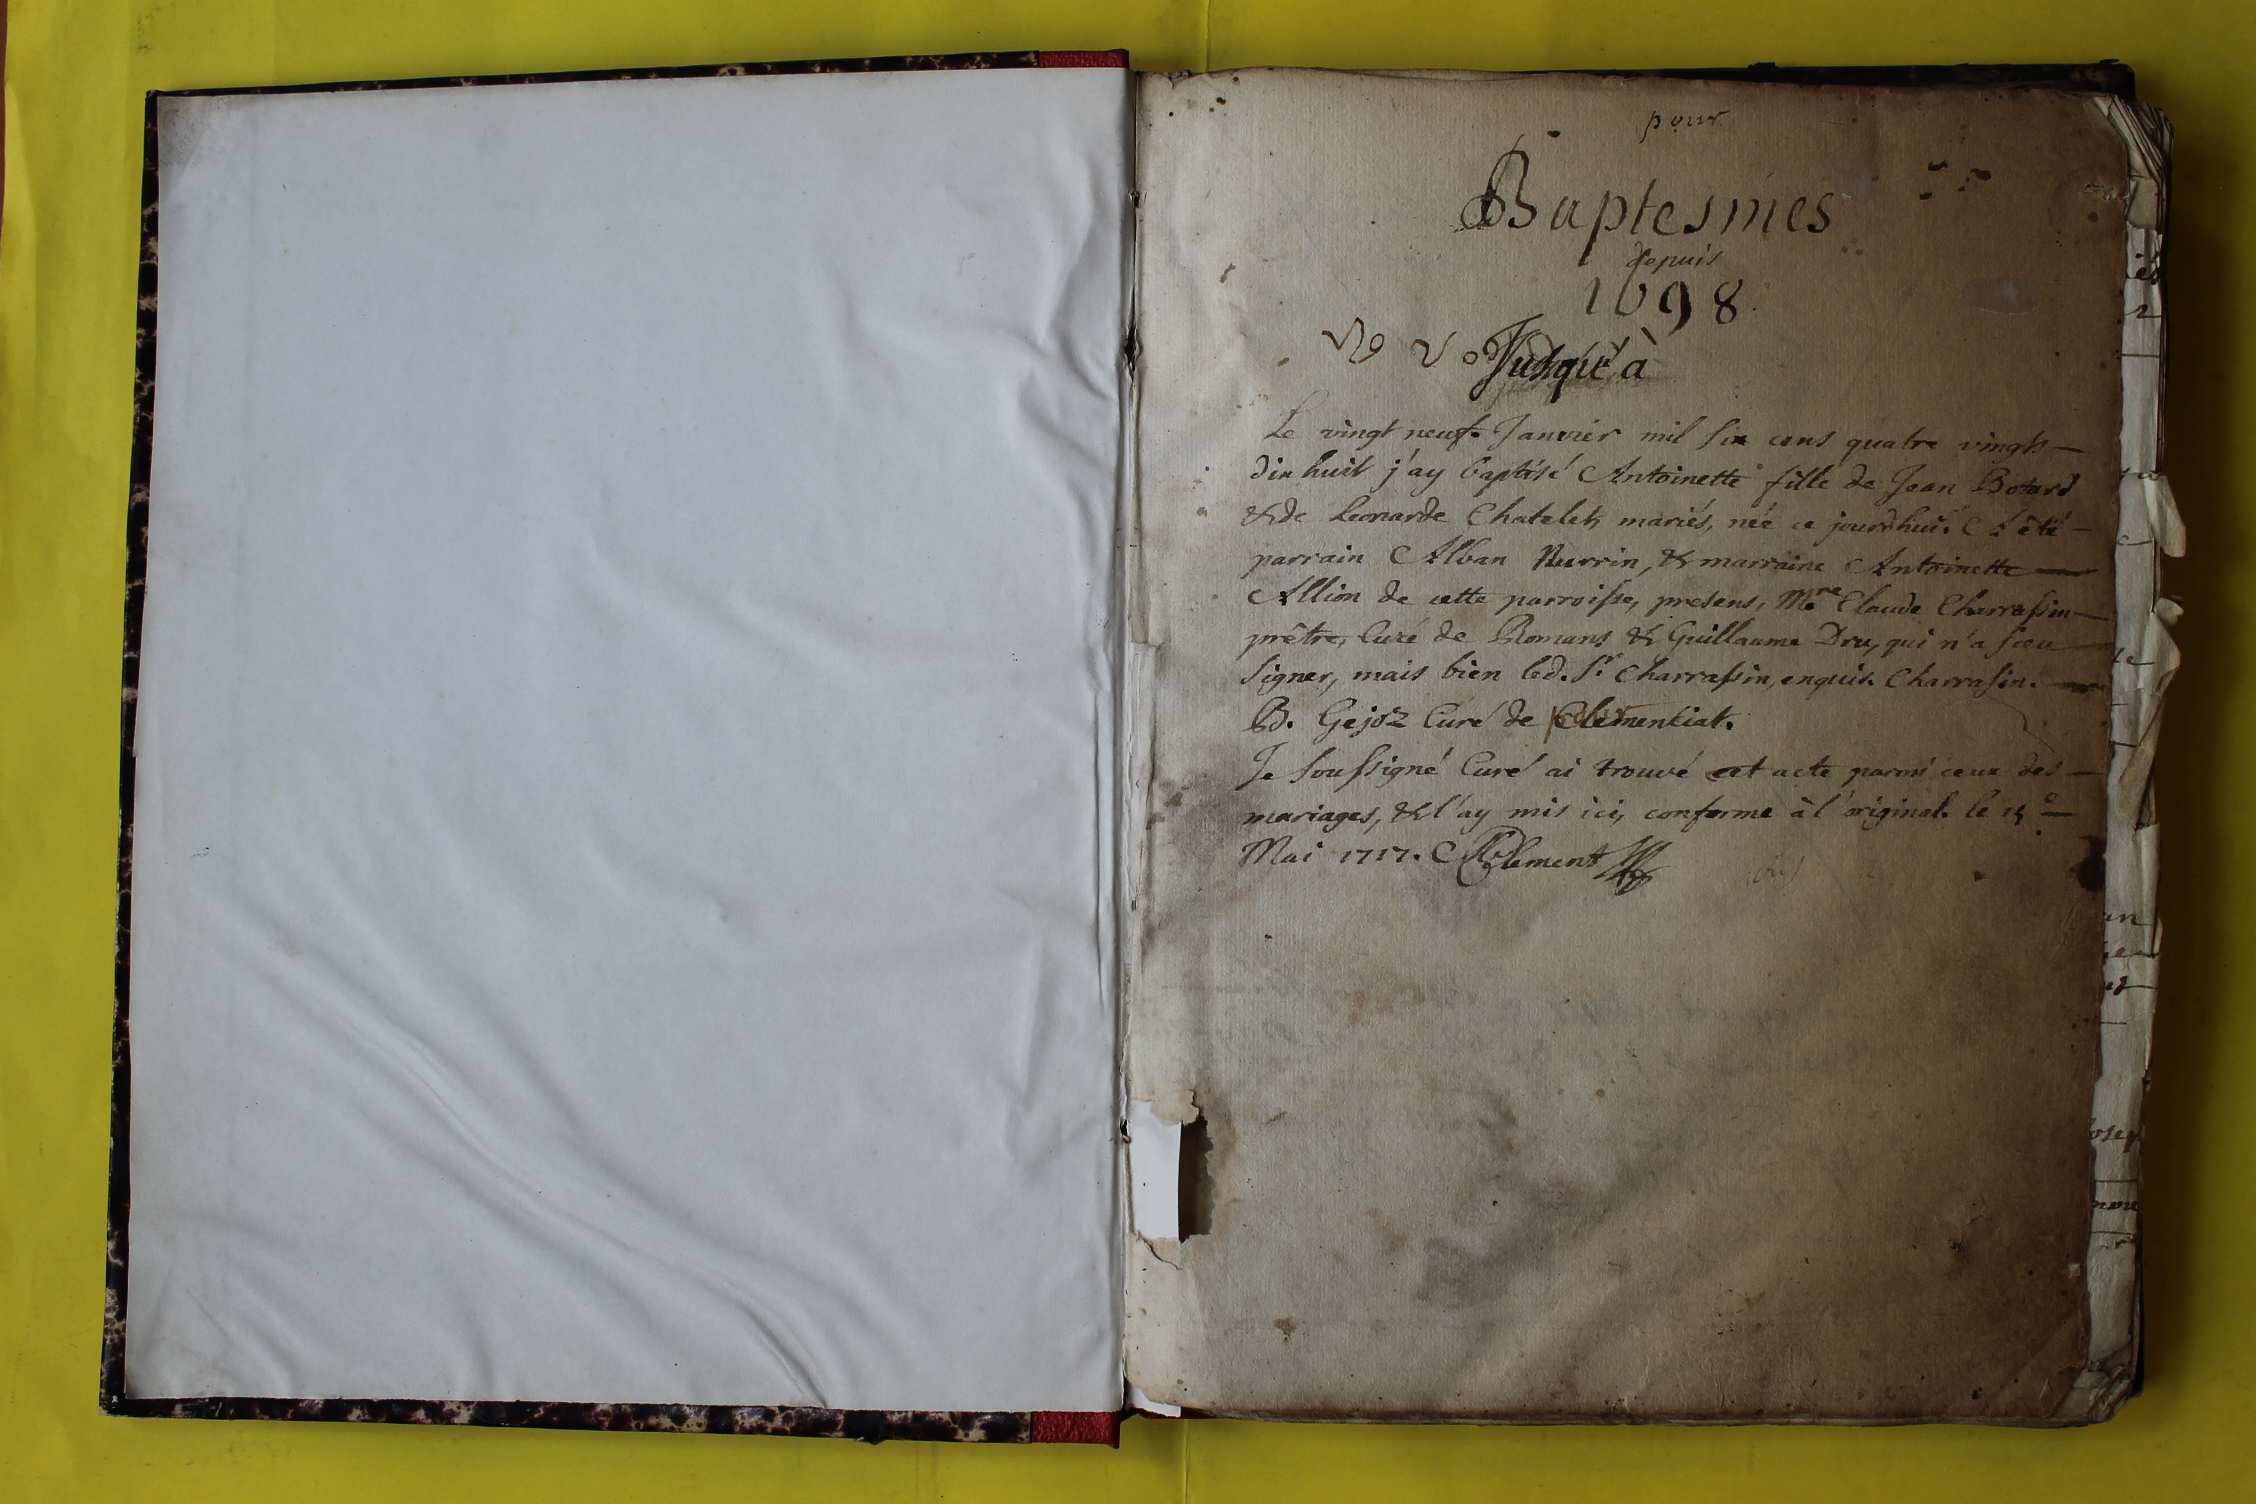 pour
Baptesmes
depuis
1698
Jusqu'à
Le vingt neuf. Janvier mil six cens quatre vingts
dix huit j'ay baptisé Antoinette fille de Jean Botard
& de Leonarde Chatelet, mariés, née ce jourdhui. A été
parrain Alban Nurrin, & marraine Antoinette
Allion de cette parroisse, presens, Mre Claude Charrassin
prêtre, Curé de Romans & Guillaume Dru, qui n'a sceu
signer, mais bien led. Sr. Charrassin, enquis. Charrasin.
B. Gejoz Curé de Clementiat.
Je soussigné Curé ai trouvé cet acte parmi ceux des
mariages, & l'ay mis ici, conforme à l'original. le 15e
Mai 1717. Clement